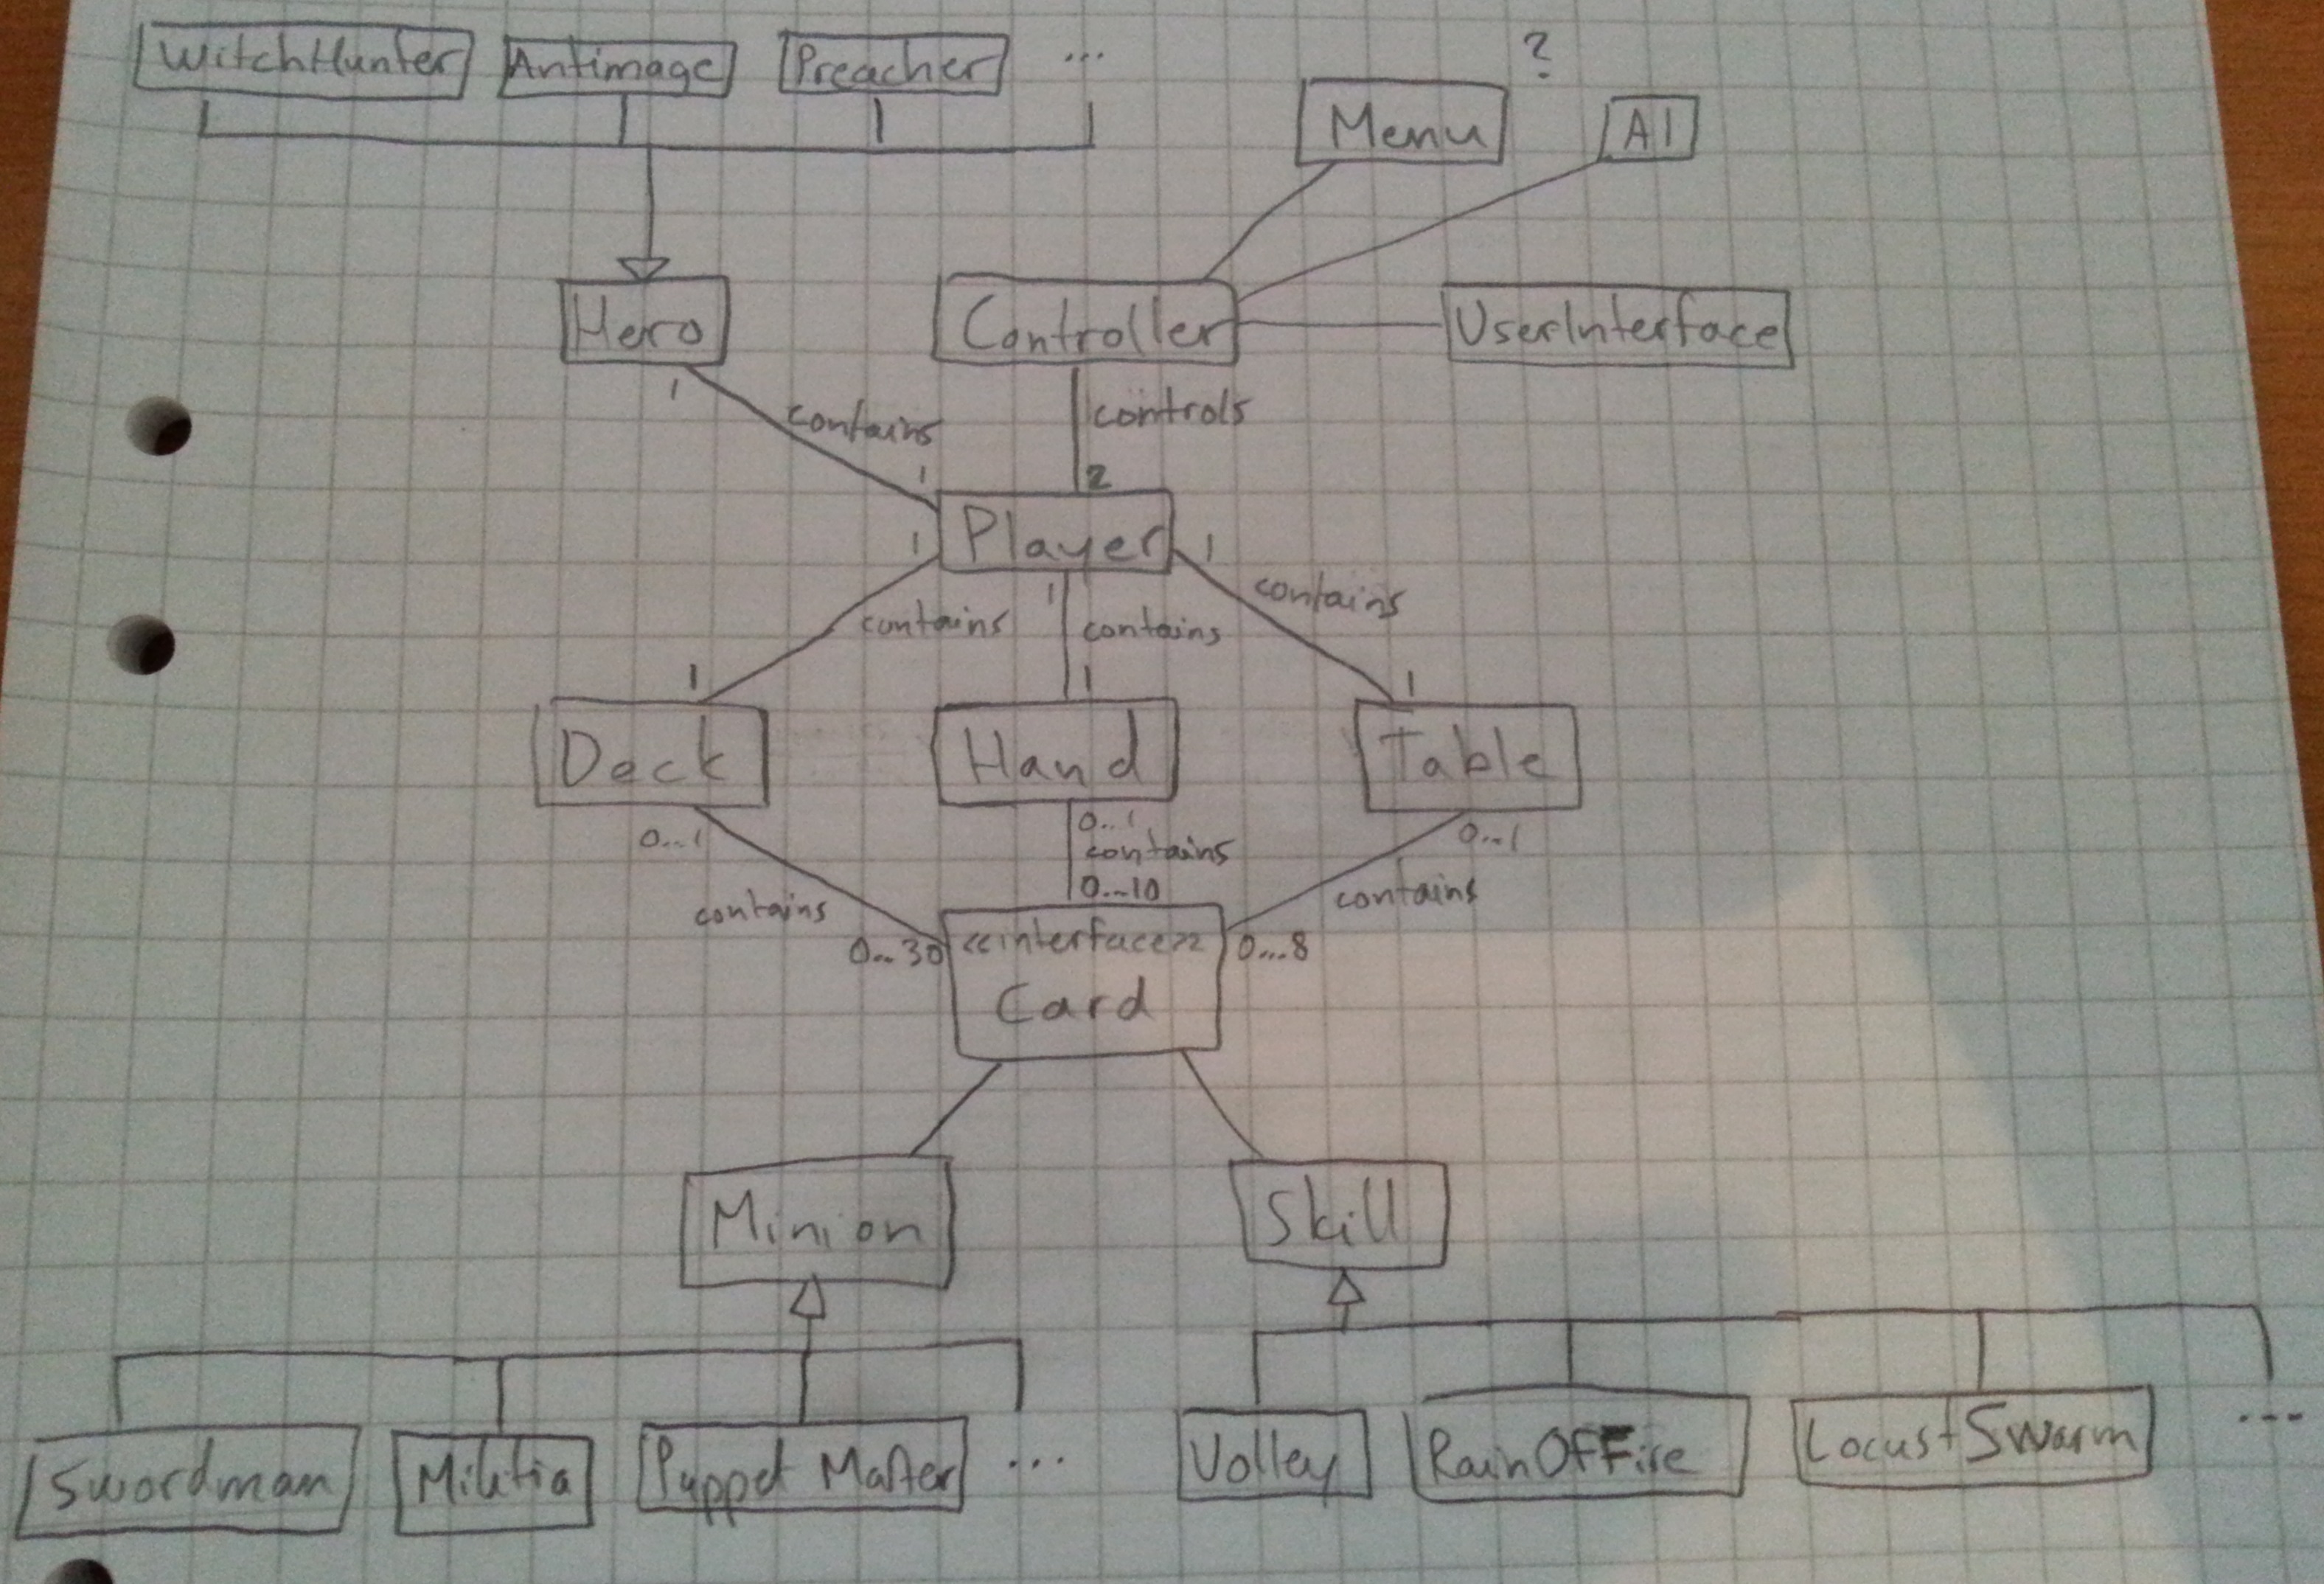 WitchHunter Antimage Preacher ...
?
Menu AI
Hero Controller UserInterface
1 contains controls
1 2
1 Player 1
contains 1 contains contains
1 1 1
Deck Hand Table
0...1 0...1 0...1
contains
contains 0...10 contains
0...30 <<interface>> 0...8
Card
Minion Skill
Swordman Militia Puppet Master ... Volley RainOfFire LocustSwarm ...